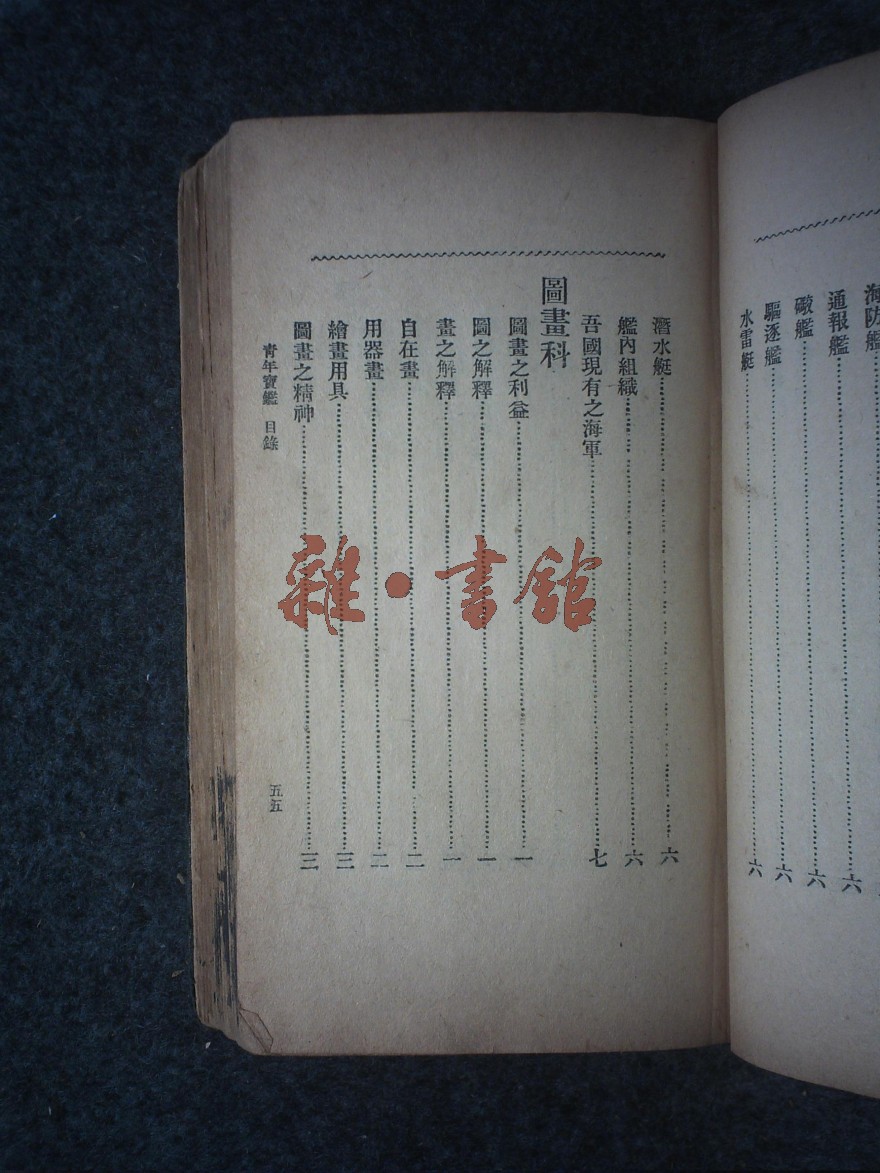 海防艦
通報艦……六
礮艦……六
驅逐艦……六
水雷艇……六
潛水艇……六
艦內組織……六
吾國現有之海軍……七
圖畫科
圖畫之利益……一
圖之解釋……一
畫之解釋……一
自在畫……二
用器畫……二
繪畫用具……三
圖畫之精神……三
青年寶鑑 目錄
五五
雜·書館